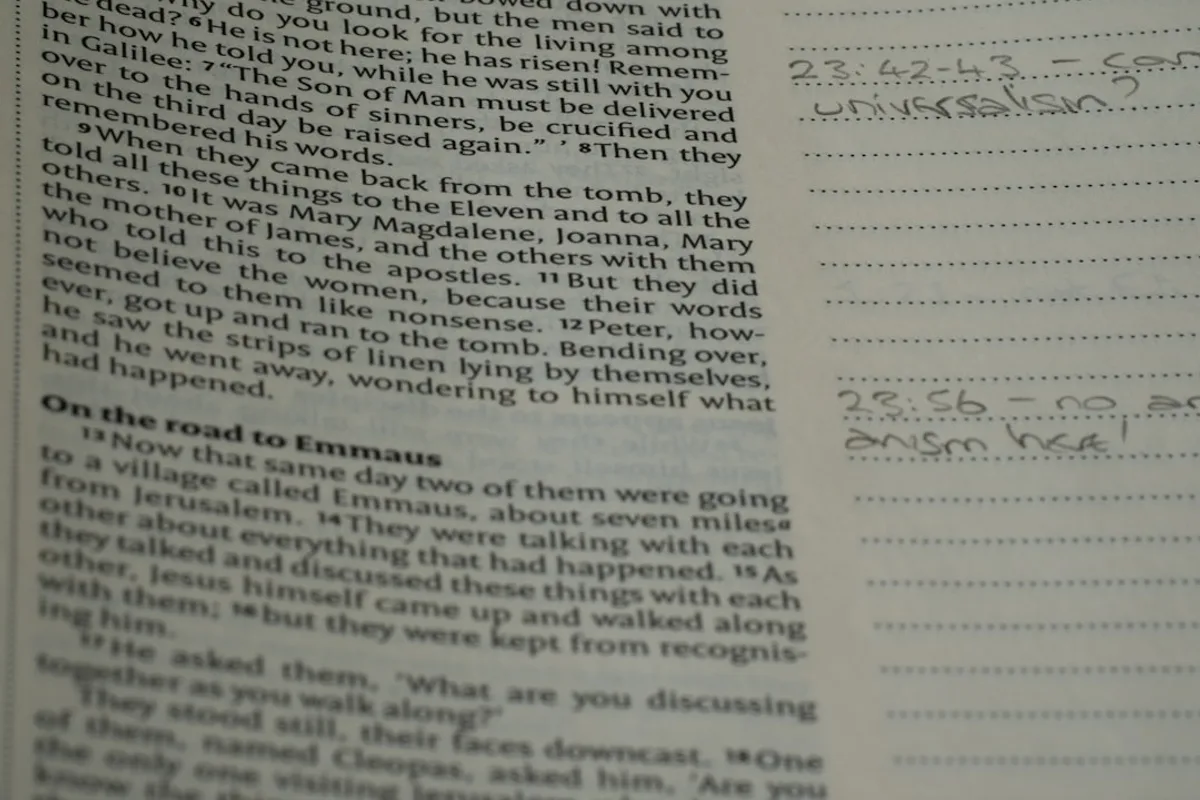 bowed down with
ground, but the men said to
why do you look for the living among
dead? 6 He is not here; he has risen! Remem-
ber how he told you, while he was still with you
in Galilee: 7 “The Son of Man must be delivered
over to the hands of sinners, be crucified and
on the third day be raised again.” ’ 8 Then they
remembered his words.
9 When they came back from the tomb, they
told all these things to the Eleven and to all the
others. 10 It was Mary Magdalene, Joanna, Mary
the mother of James, and the others with them
who told this to the apostles. 11 But they did
not believe the women, because their words
seemed to them like nonsense. 12 Peter, how-
ever, got up and ran to the tomb. Bending over,
he saw the strips of linen lying by themselves,
and he went away, wondering to himself what
had happened.
On the road to Emmaus
13 Now that same day two of them were going
to a village called Emmaus, about seven miles a
from Jerusalem. 14 They were talking with each
other about everything that had happened. 15 As
they talked and discussed these things with each
other, Jesus himself came up and walked along
with them; 16 but they were kept from recognis-
ing him.
17 He asked them, ‘What are you discussing
together as you walk along?’
They stood still, their faces downcast. 18 One
of them, named Cleopas, asked him, ‘Are you
the only one visiting Jerusalem
know the
23:42-43 - can
universalism?
23:56 - no
anism here!